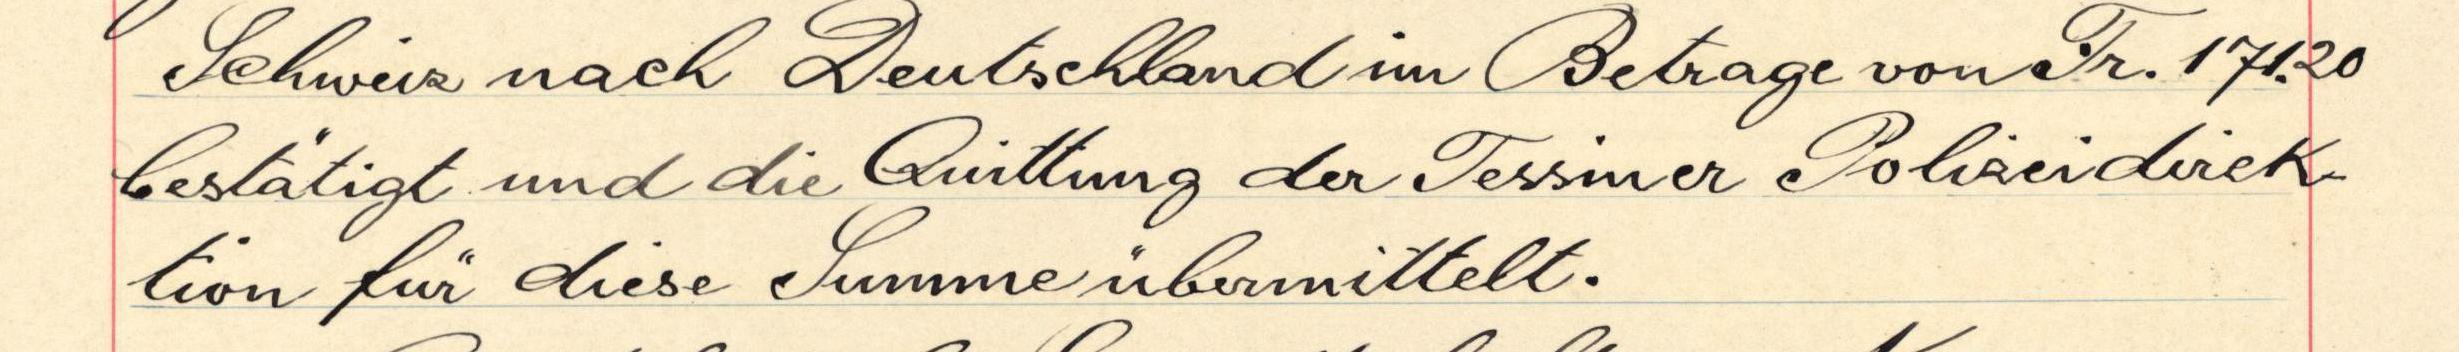 Schweiz nach Deutschland im Betrage von Fr. 171.20
bestätigt und die Quittung der Tessiner Polizeidirek-
tion für diese Summe übermittelt.